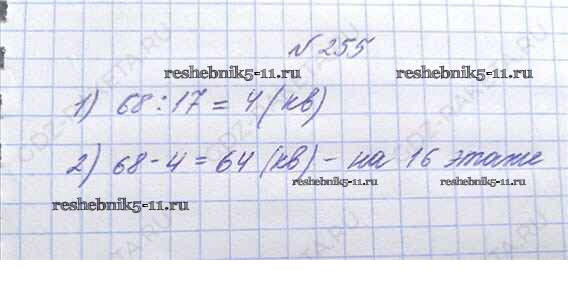 № 255
reshebnik5-11.ru reshebnik5-11.ru
1) 68 : 17 = 4 (кв)
2) 68 - 4 = 64 (кв) - на 16 этаже
reshebnik5-11.ru reshebnik5-11.ru
reshebnik5-11.ru